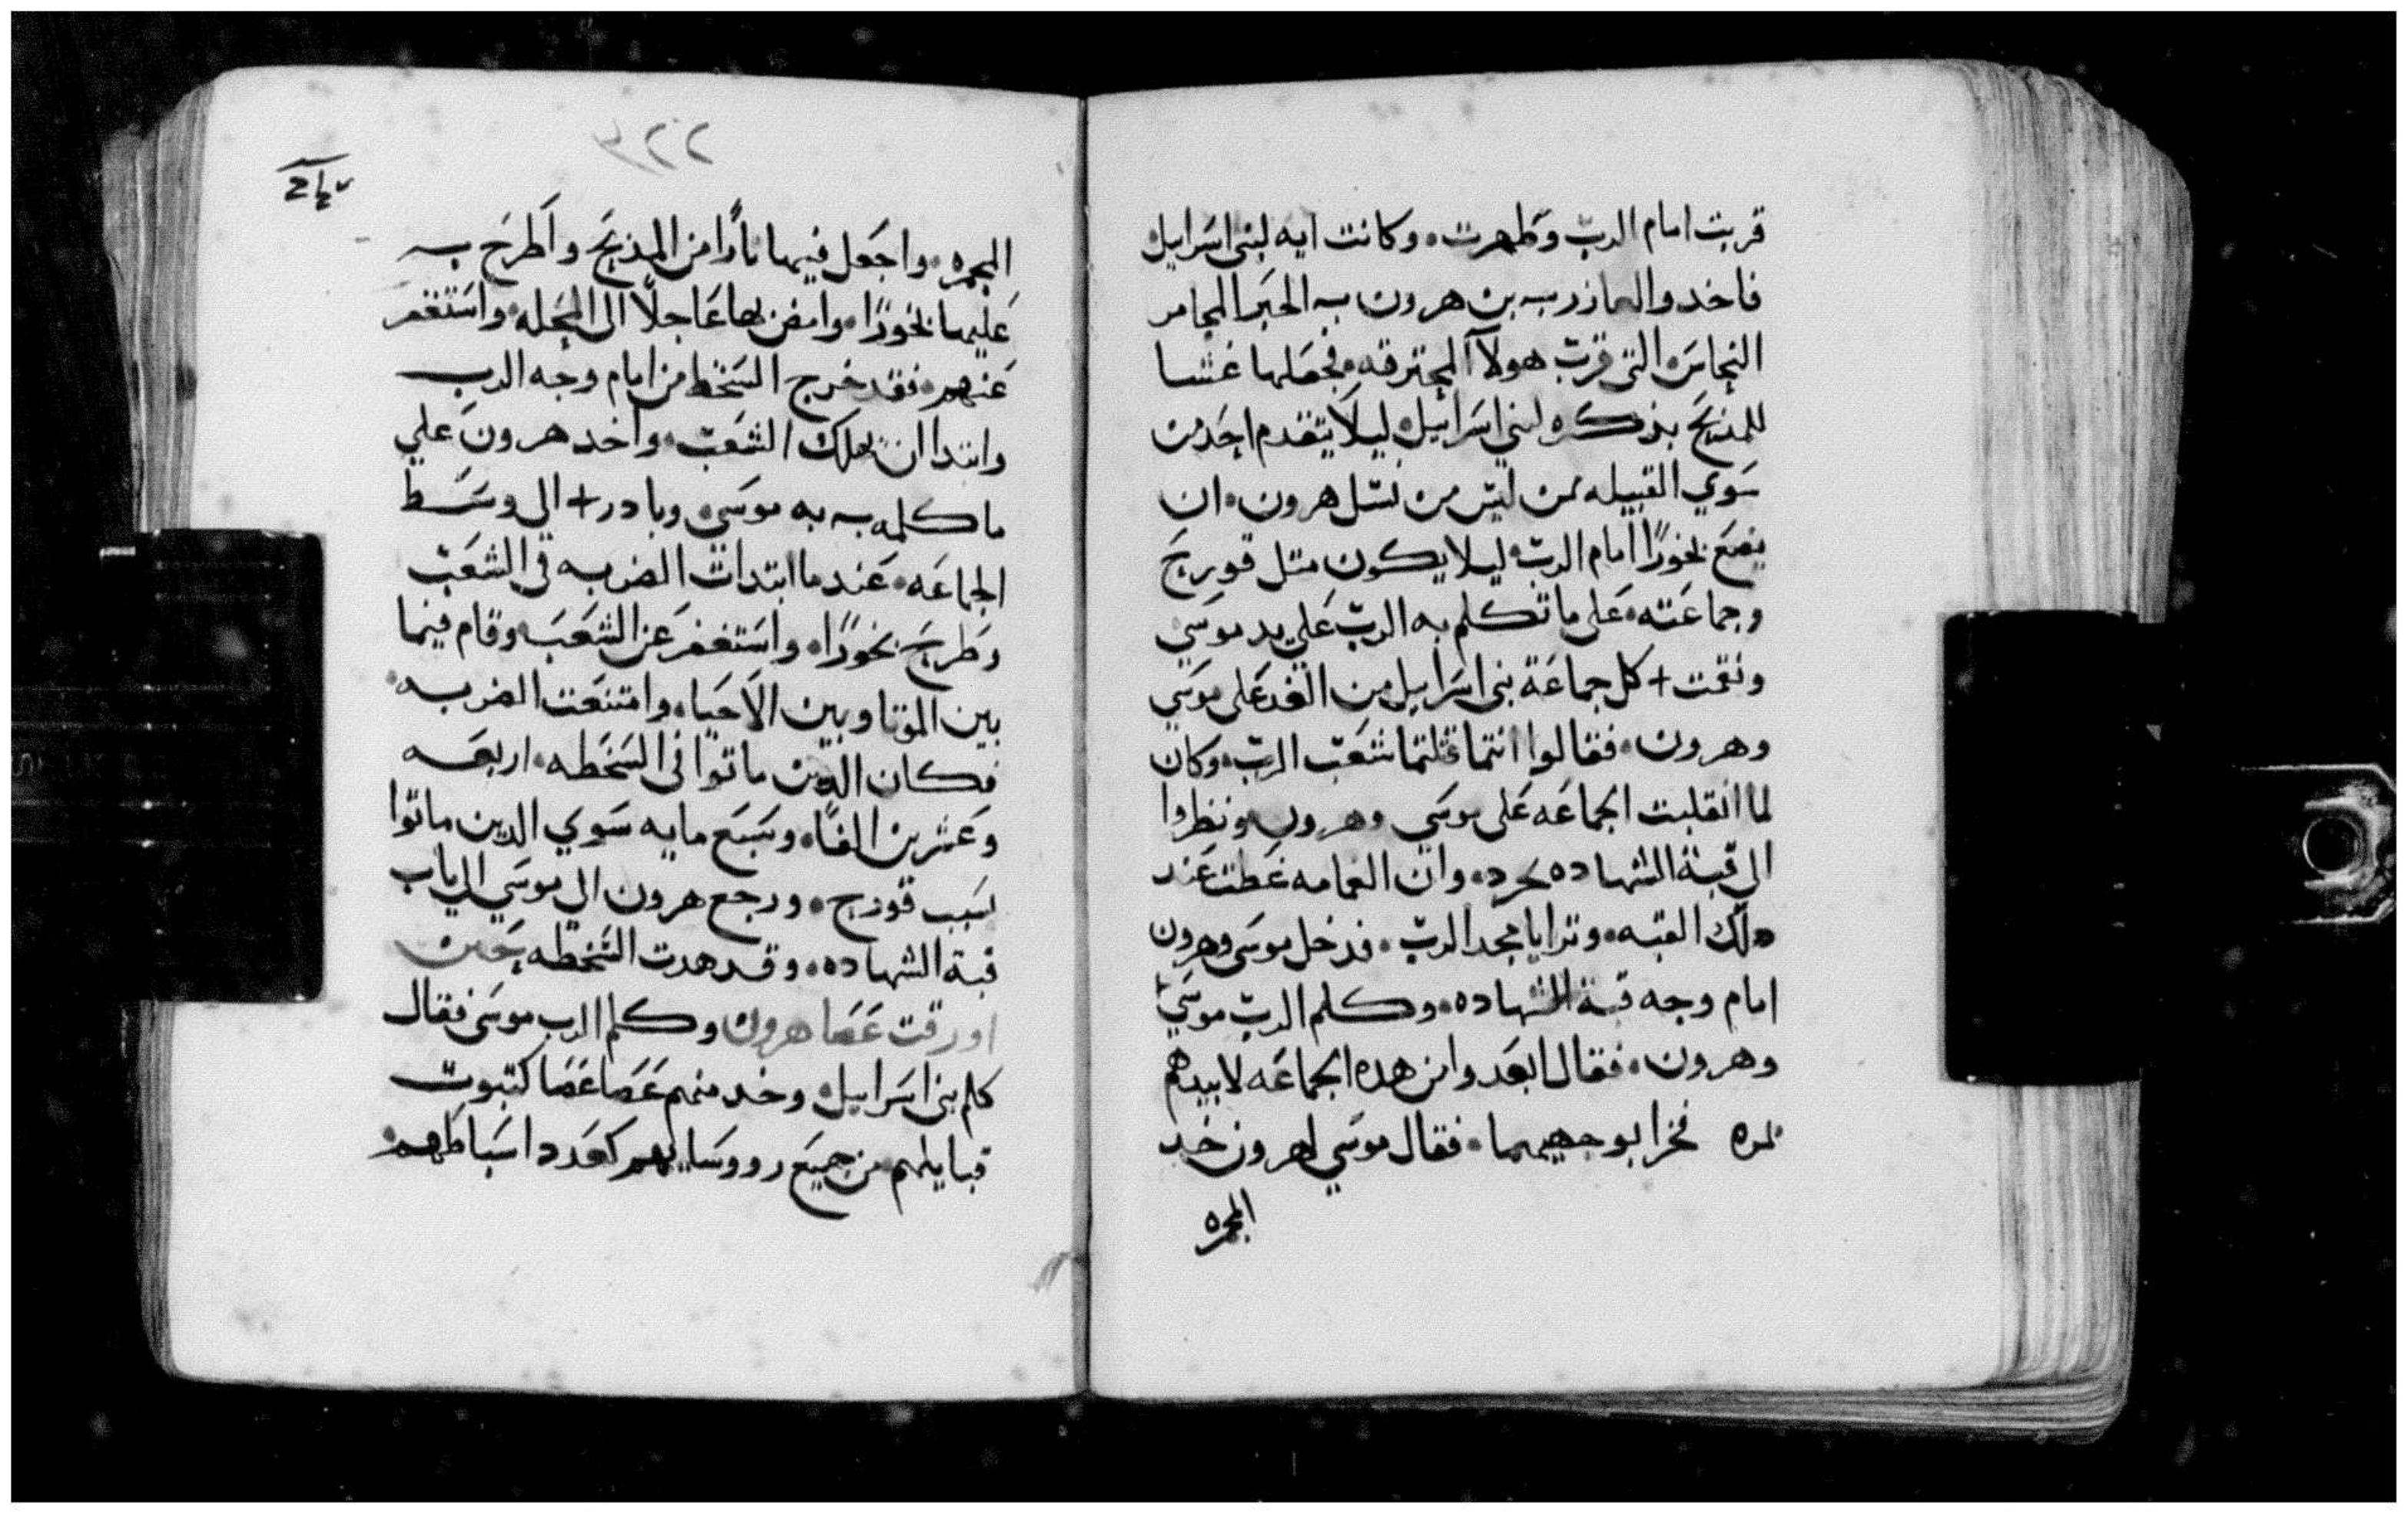 قربت امام الرب وطهرت. وكانت ايه لبني اسراييل
فاخد والعازر بن هرون الحبر المجامر
النحاس التي قرب هولآ المحترقه. فجعلها غشا
للمدبح بدكره لبني اسراييل. ليلا يتقدم احد من
سوي القبيله ممن ليس من نسل هرون. ان
يضع بخورًا امام الرب. ليلا يكون متل قوريح
وجماعته. على ما تكلم به الرب علي يد موسي
ونقمت + كل جماعة بني اسراييل من الغد على موسي
وهرون. فقالوا انتما قتلتما شعب الرب. وكان
لما انقلبت الجماعه على موسي وهرون ونظروا
الي قبة الشهاده وان الغمامه غطت عند
دلك القبه. وترايا مجد الرب. فدخل موسى وهرون
امام وجه قبة الشهاده. وكلم الرب موسي
وهرون. فقال ابعدوا من هده الجماعه لابيدهم
بمره فخرا بوجهيهما. فقال موسي لهرون خد
المجمره
٣٢٢
المجمره. واجعل فيها نارًا من المدبح واطرح
عليها بخورًا. وامض بها عاجلًا الى المحله. واستغفر
عنهم. فقد خرج السخط من امام وجه الرب
وابتدا ان يهلك الشعب. واخد هرون علي
ما كلمه به موسي. وبادر + الي وسط
الجماعه. عند ما ابتدات الضربه في الشعب
وطرح بخورًا. واستغفر عن الشعب. وقام فيما
بين الموتا وبين الاحيا. وامتنعت الضربه.
فكان الدين ماتوا في السخطه. اربعه
وعشرين الفًا. وسبع مايه سوي الدين ماتوا
بسبب قورح. ورجع هرون الي موسي الي باب
قبة الشهاده. وقد هدت السخطه حين
اورقت عصا هرون وكلم الرب موسى فقال
كلم بني اسراييل. وخد منهم عصا عصا كبيوت
قبايلهم من جميع رووسايهم كعدد اسباطهم.